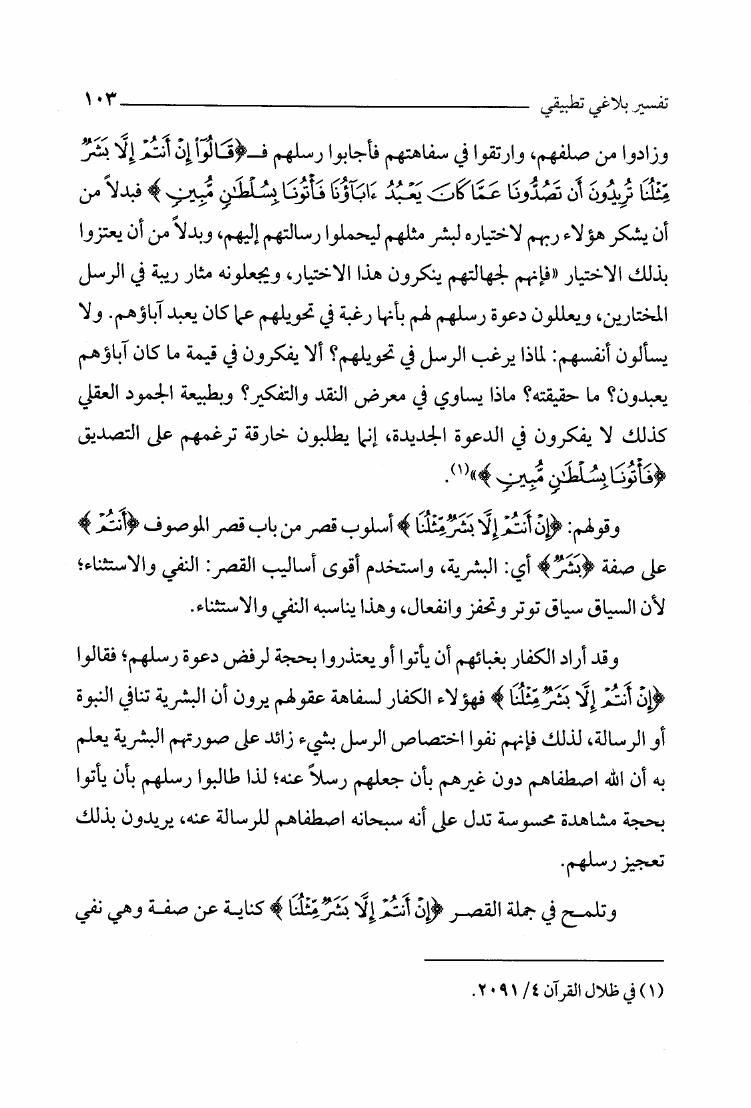 تفسير بلاغي تطبيقي ١٠٣
وزادوا من صلفهم، وارتقوا في سفاهتهم فأجابوا رسلهم فـ﴿قَالُوٓا۟ إِنْ أَنتُمْ إِلَّا بَشَرٌ
مِّثْلُنَا تُرِيدُونَ أَن تَصُدُّونَا عَمَّا كَانَ يَعْبُدُ ءَابَآؤُنَا فَأْتُونَا بِسُلْطَٰنٍ مُّبِينٍ﴾ فبدلاً من
أن يشكر هؤلاء ربهم لاختياره لبشر مثلهم ليحملوا رسالتهم إليهم، وبدلاً من أن يعتزوا
بذلك الاختيار «فإنهم لجهالتهم ينكرون هذا الاختيار، ويجعلونه مثار ريبة في الرسل
المختارين، ويعللون دعوة رسلهم لهم بأنها رغبة في تحويلهم عما كان يعبد آباؤهم. ولا
يسألون أنفسهم: لماذا يرغب الرسل في تحويلهم؟ ألا يفكرون في قيمة ما كان آباؤهم
يعبدون؟ ما حقيقته؟ ماذا يساوي في معرض النقد والتفكير؟ وبطبيعة الجمود العقلي
كذلك لا يفكرون في الدعوة الجديدة، إنما يطلبون خارقة ترغمهم على التصديق
﴿فَأْتُونَا بِسُلْطَٰنٍ مُّبِينٍ﴾»(١).
وقولهم: ﴿إِنْ أَنتُمْ إِلَّا بَشَرٌ مِّثْلُنَا﴾ أسلوب قصر من باب قصر الموصوف ﴿أَنتُمْ﴾
على صفة ﴿بَشَرٌ﴾ أي: البشرية، واستخدم أقوى أساليب القصر: النفي والاستثناء؛
لأن السياق سياق توتر وتحفز وانفعال، وهذا يناسبه النفي والاستثناء.
وقد أراد الكفار بغبائهم أن يأتوا أو يعتذروا بحجة لرفض دعوة رسلهم؛ فقالوا
﴿إِنْ أَنتُمْ إِلَّا بَشَرٌ مِّثْلُنَا﴾ فهؤلاء الكفار لسفاهة عقولهم يرون أن البشرية تنافي النبوة
أو الرسالة، لذلك فإنهم نفوا اختصاص الرسل بشيء زائد على صورتهم البشرية يعلم
به أن الله اصطفاهم دون غيرهم بأن جعلهم رسلاً عنه؛ لذا طالبوا رسلهم بأن يأتوا
بحجة مشاهدة محسوسة تدل على أنه سبحانه اصطفاهم للرسالة عنه، يريدون بذلك
تعجيز رسلهم.
وتلمح في جملة القصر ﴿إِنْ أَنتُمْ إِلَّا بَشَرٌ مِّثْلُنَا﴾ كناية عن صفة وهي نفي
(١) في ظلال القرآن ٤/ ٢٠٩١.